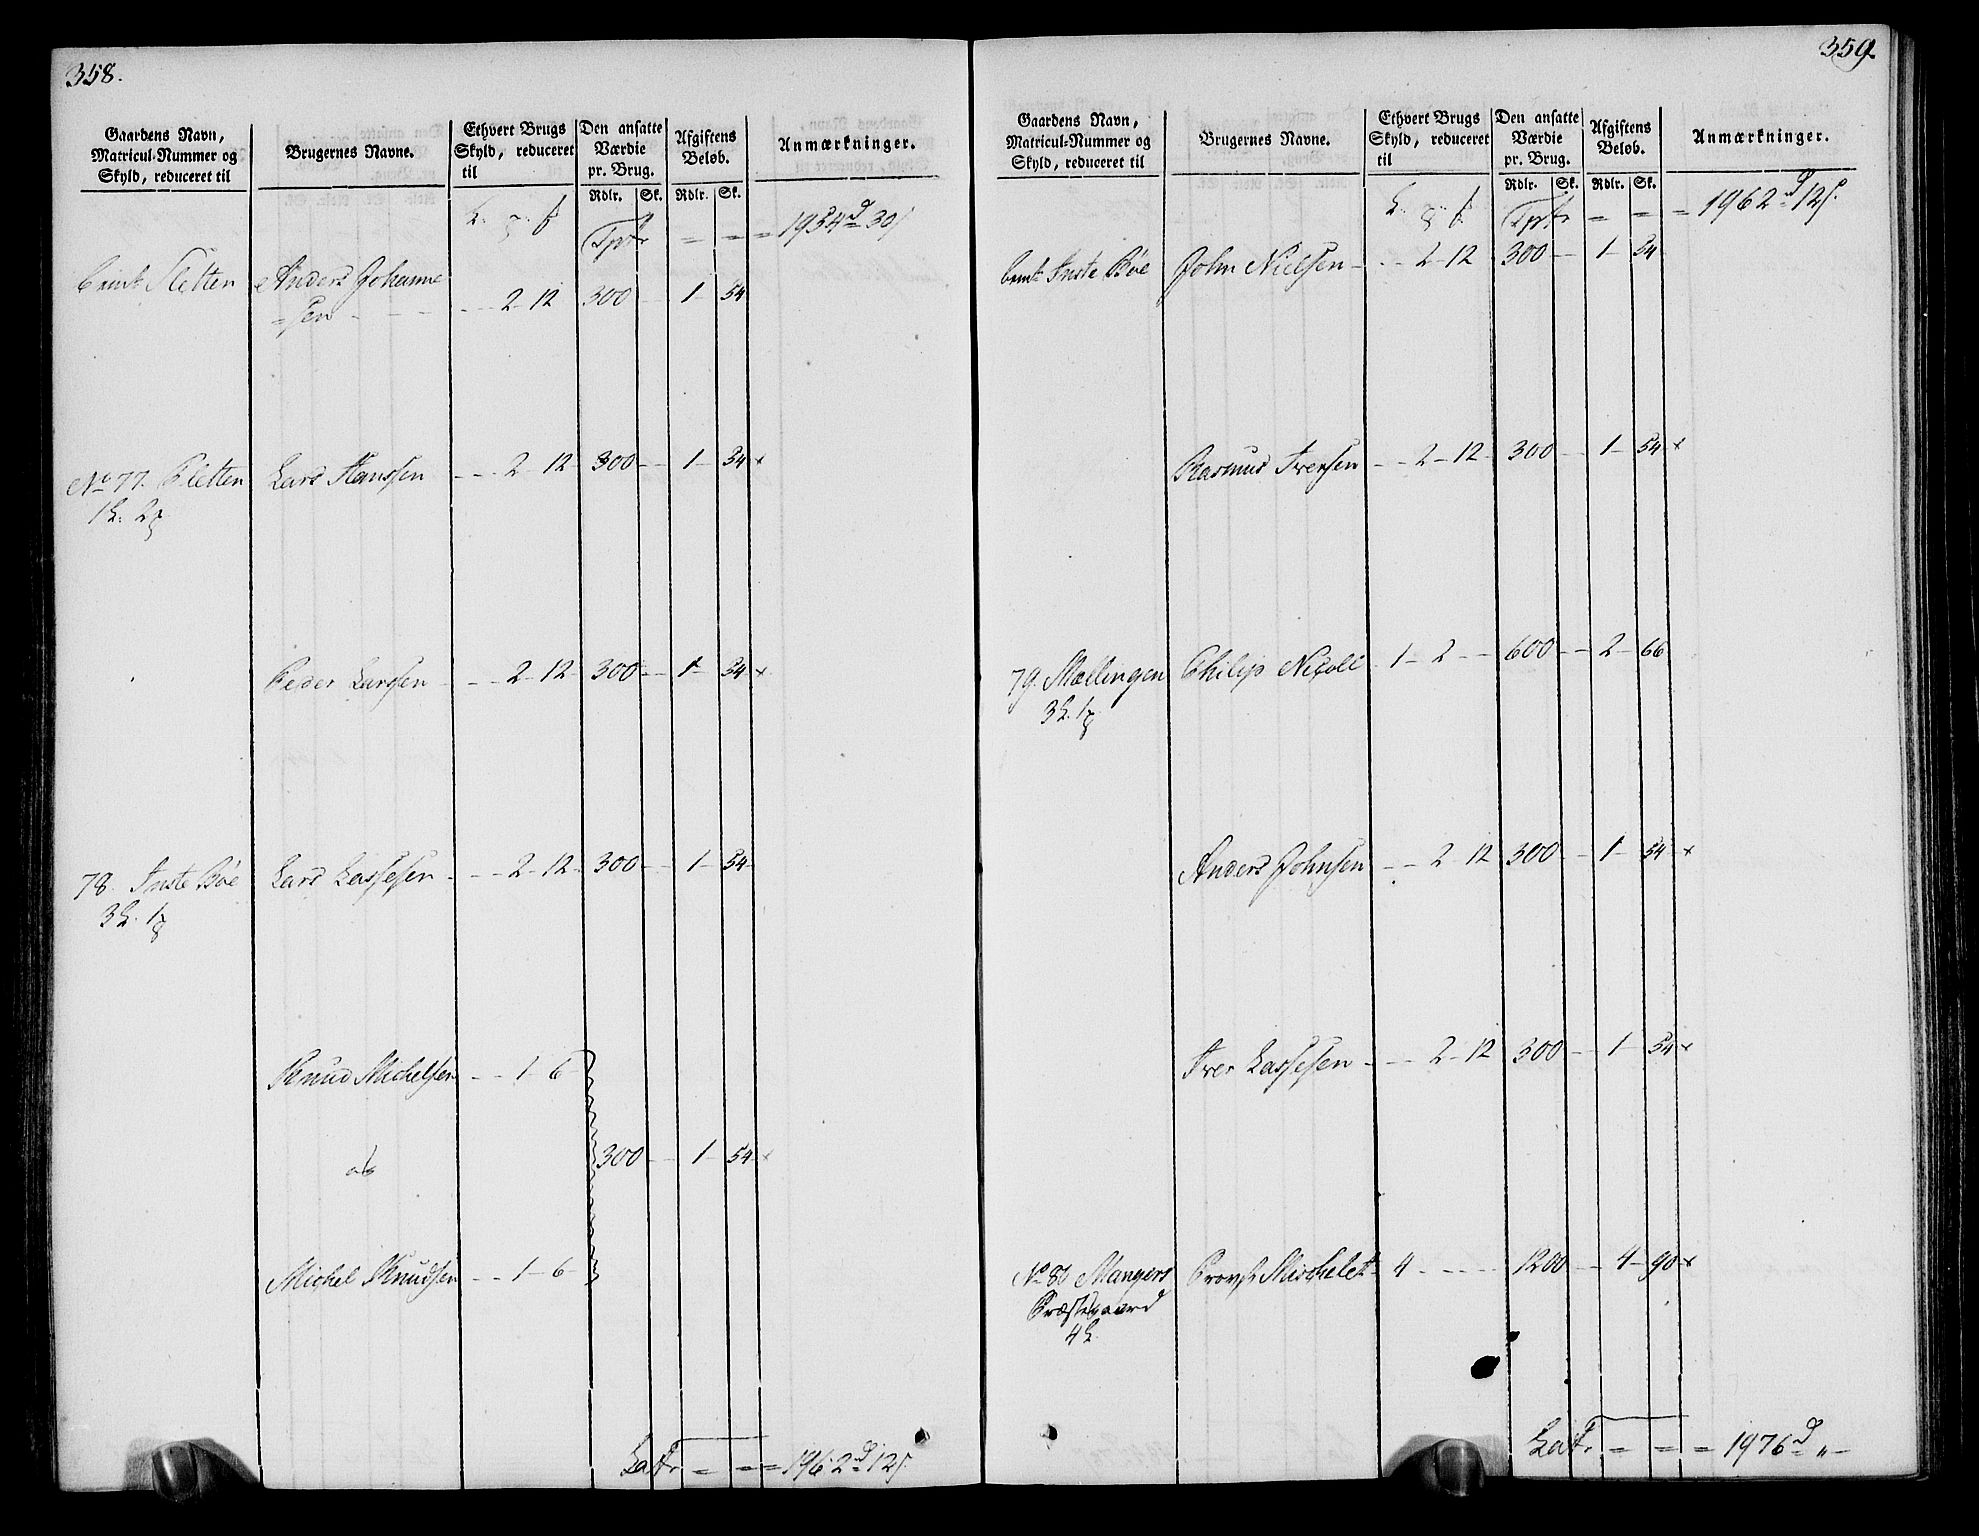 358.
Gaardens Navn, Matricul-Nummer og Skyld, reduceret til
Brugernes Navne.
Ethvert Brugs Skyld, reduceret til
Den ansatte Værdie pr. Brug.
Afgiftens Beløb.
Anmærkninger.
Rdlr. Sk. Rdlr. Sk.
Tptr = = = 1954 d 30 s
Sletten Anders Johanne
=sen - - - - 2 - 12 300 - 1 - 54
No 77. Sletten Lars Hanssen - - 2 - 12 300 - - 1 - 54 x
1 L. 2
Peder Larssen - - 2 - 12 300 - - 1 - 54 x
78. Inste Böe Lars Lassesen - - - 2 - 12 300 - - 1 - 54
3 L. 1
Knud Michelsen - - 1 - 6
300 - - 1 - 54 x
Michel Knudsen - - 1 - 6
Latr = = = 1962 d 12 s
359.
Gaardens Navn, Matricul-Nummer og Skyld, reduceret til
Brugernes Navne.
Ethvert Brugs Skyld, reduceret til
Den ansatte Værdie pr. Brug.
Afgiftens Beløb.
Anmærkninger.
Rdlr. Sk. Rdlr. Sk.
Tptr = = = 1962 d 12 s
Inste Böe John Nielsen - - - 2 - 12 300 - - 1 - 54
Rasmus Iversen - - - 2 - 12 300 - - 1 - 54 x
79. Mællingen Philip Nicoll - 1 - 2 - - 600 - - 2 - 66
3 L. 1
Anders Johnsen - - 2 12 300 - - 1 - 54 x
Iver Lassesen - - - 2 - 12 300 - - 1 - 54 x
No 80 Mangers Provst Michelet - 4 - - - - 1200 - - 4 - 90 x
Præstegaard
4 L.
Latr = = = 1976 d " -